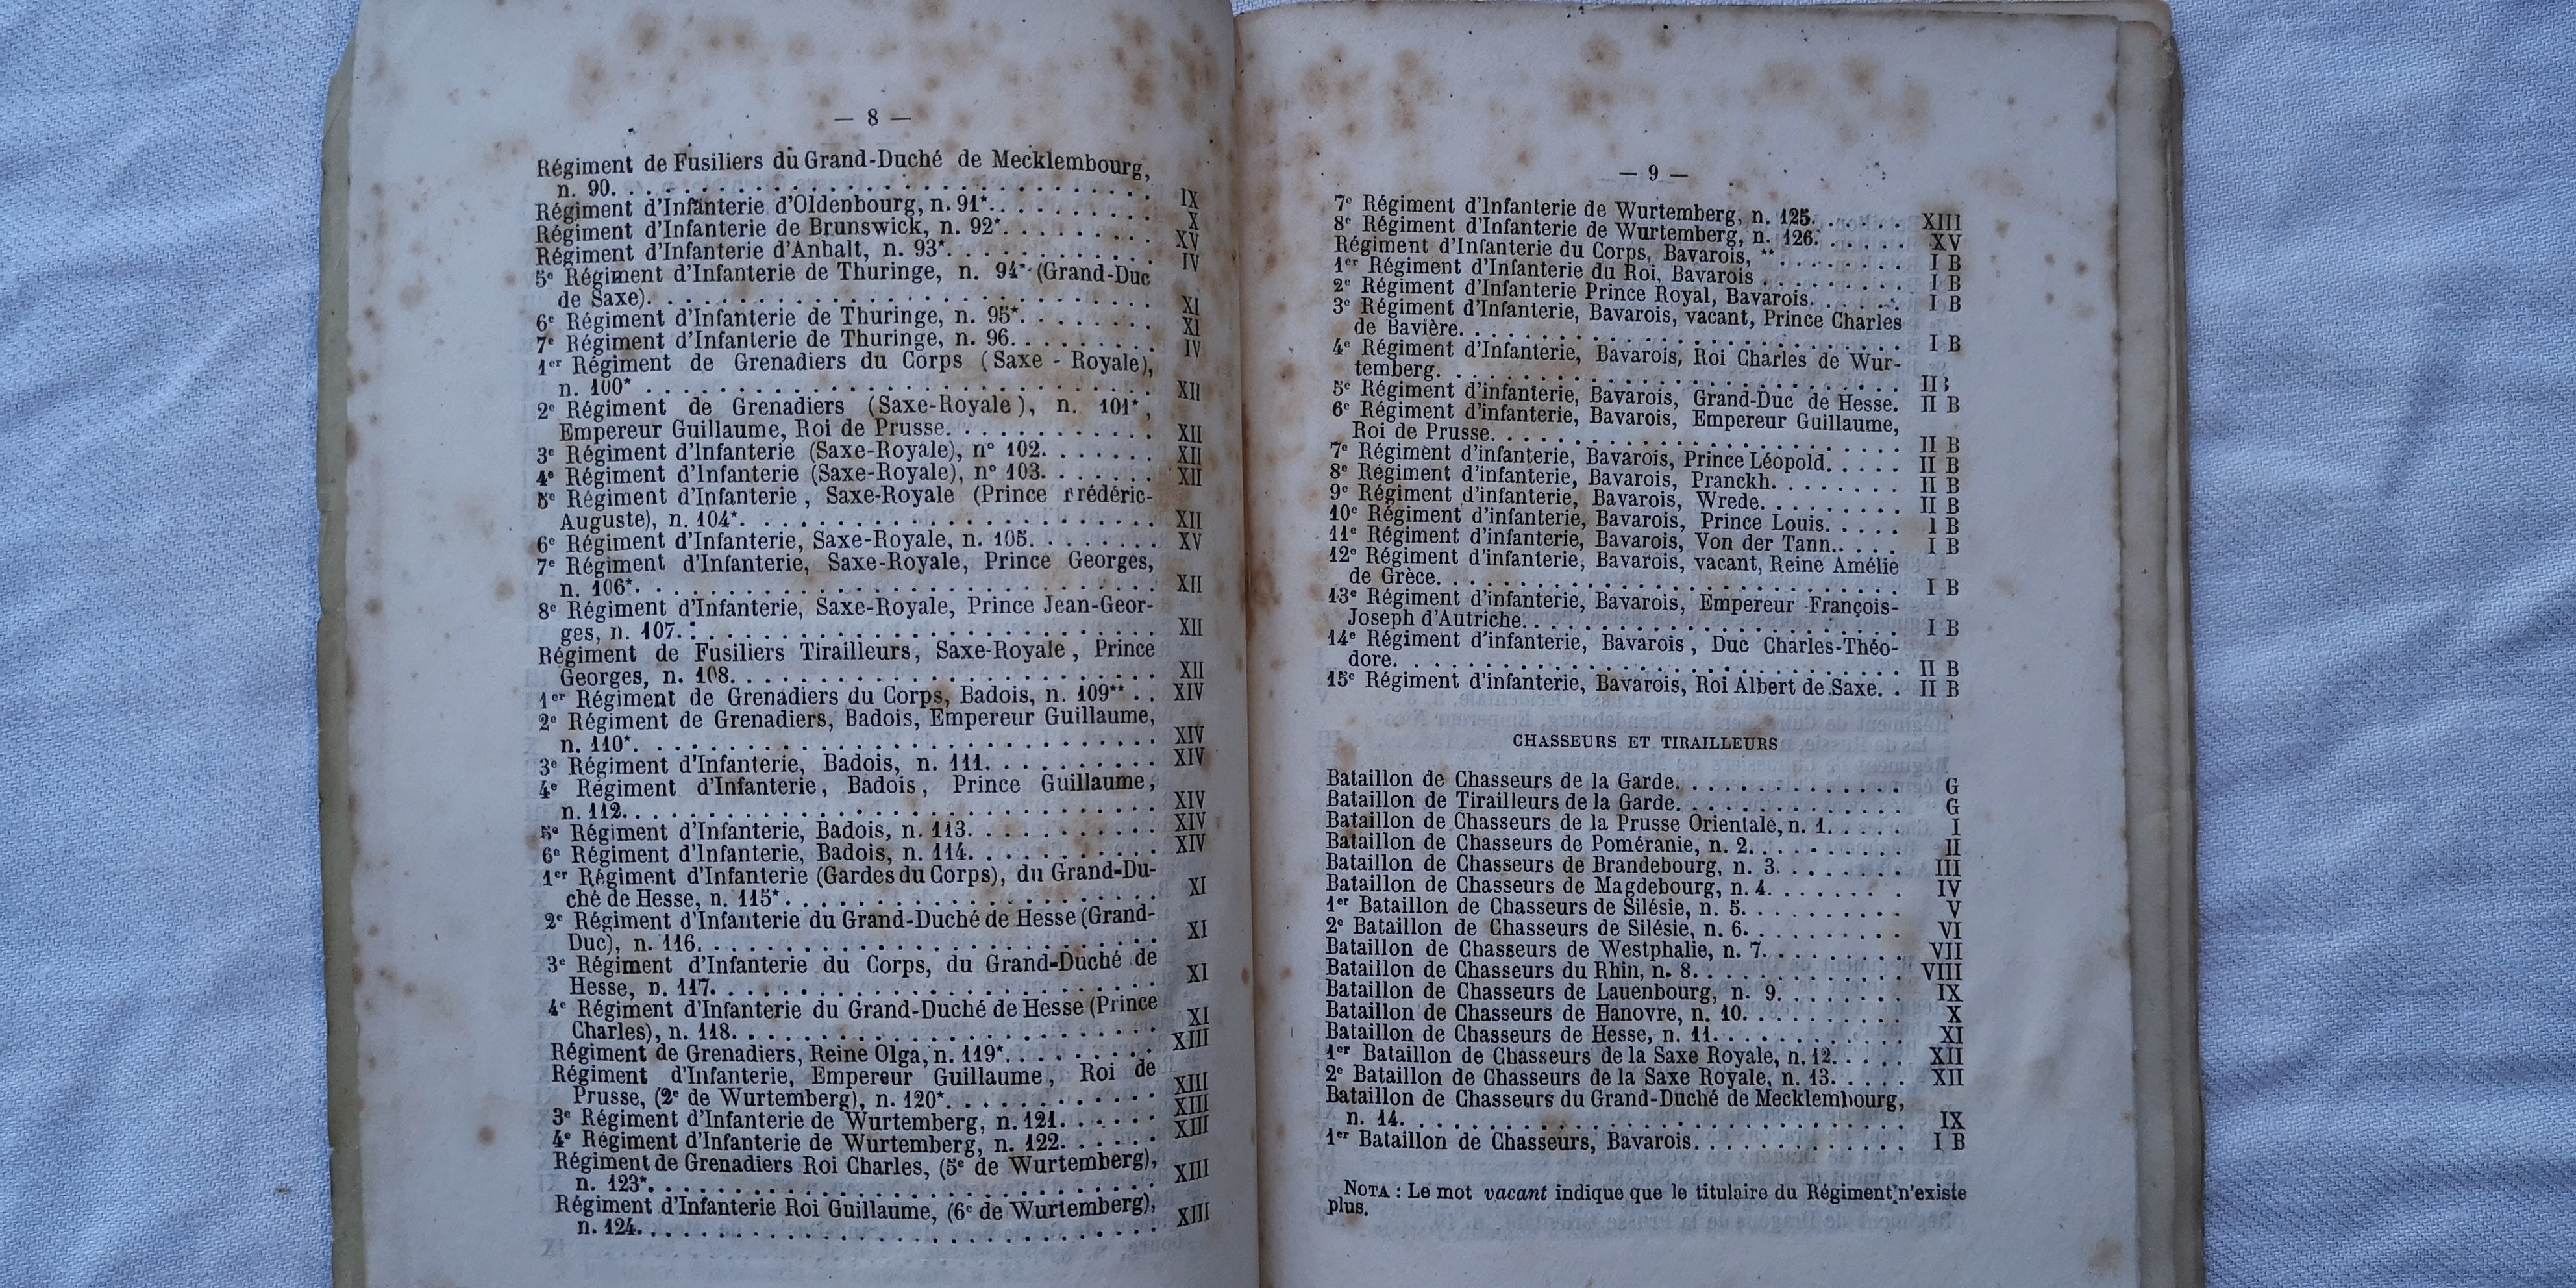 — 8 —
Régiment de Fusiliers du Grand-Duché de Mecklembourg,
n. 90. . . . . . . . . . . . . . . . . . . . . . . . . . IX
Régiment d'Infanterie d'Oldenbourg, n. 91*. . . . . . . . . X
Régiment d'Infanterie de Brunswick, n. 92*. . . . . . . . . XV
Régiment d'Infanterie d'Anhalt, n. 93*. . . . . . . . . . . IV
5e Régiment d'Infanterie de Thuringe, n. 94* (Grand-Duc
de Saxe). . . . . . . . . . . . . . . . . . . . . . . . XI
6e Régiment d'Infanterie de Thuringe, n. 95*. . . . . . . . XI
7e Régiment d'Infanterie de Thuringe, n. 96. . . . . . . . IV
1er Régiment de Grenadiers du Corps (Saxe - Royale),
n. 100* . . . . . . . . . . . . . . . . . . . . . . . . XII
2e Régiment de Grenadiers (Saxe-Royale), n. 101*,
Empereur Guillaume, Roi de Prusse. . . . . . . . . . . . XII
3e Régiment d'Infanterie (Saxe-Royale), n° 102. . . . . . . XII
4e Régiment d'Infanterie (Saxe-Royale), n° 103. . . . . . . XII
5e Régiment d'Infanterie, Saxe-Royale (Prince Frédéric-
Auguste), n. 104*. . . . . . . . . . . . . . . . . . . . XII
6e Régiment d'Infanterie, Saxe-Royale, n. 105. . . . . . . . XV
7e Régiment d'Infanterie, Saxe-Royale, Prince Georges,
n. 106*. . . . . . . . . . . . . . . . . . . . . . . . . XII
8e Régiment d'Infanterie, Saxe-Royale, Prince Jean-Geor-
ges, n. 107. . . . . . . . . . . . . . . . . . . . . . . XII
Régiment de Fusiliers Tirailleurs, Saxe-Royale, Prince
Georges, n. 108. . . . . . . . . . . . . . . . . . . . . XII
1er Régiment de Grenadiers du Corps, Badois, n. 109** . . XIV
2e Régiment de Grenadiers, Badois, Empereur Guillaume,
n. 110*. . . . . . . . . . . . . . . . . . . . . . . . . XIV
3e Régiment d'Infanterie, Badois, n. 111. . . . . . . . . . XIV
4e Régiment d'Infanterie, Badois, Prince Guillaume,
n. 112. . . . . . . . . . . . . . . . . . . . . . . . . XIV
5e Régiment d'Infanterie, Badois, n. 113. . . . . . . . . . XIV
6e Régiment d'Infanterie, Badois, n. 114. . . . . . . . . . XIV
1er Régiment d'Infanterie (Gardes du Corps), du Grand-Du-
ché de Hesse, n. 115*. . . . . . . . . . . . . . . . . . XI
2e Régiment d'Infanterie du Grand-Duché de Hesse (Grand-
Duc), n. 116. . . . . . . . . . . . . . . . . . . . . . XI
3e Régiment d'Infanterie du Corps, du Grand-Duché de
Hesse, n. 117. . . . . . . . . . . . . . . . . . . . . . XI
4e Régiment d'Infanterie du Grand-Duché de Hesse (Prince
Charles), n. 118. . . . . . . . . . . . . . . . . . . . XI
Régiment de Grenadiers, Reine Olga, n. 119*. . . . . . . . XIII
Régiment d'Infanterie, Empereur Guillaume, Roi de
Prusse, (2e de Wurtemberg), n. 120*. . . . . . . . . . . XIII
3e Régiment d'Infanterie de Wurtemberg, n. 121. . . . . . XIII
4e Régiment d'Infanterie de Wurtemberg, n. 122. . . . . . XIII
Régiment de Grenadiers Roi Charles, (5e de Wurtemberg),
n. 123*. . . . . . . . . . . . . . . . . . . . . . . . . XIII
Régiment d'Infanterie Roi Guillaume, (6e de Wurtemberg),
n. 124. . . . . . . . . . . . . . . . . . . . . . . . . XIII
— 9 —
7e Régiment d'Infanterie de Wurtemberg, n. 125. . . . . . XIII
8e Régiment d'Infanterie de Wurtemberg, n. 126. . . . . . XV
Régiment d'Infanterie du Corps, Bavarois, **. . . . . . . . I B
1er Régiment d'Infanterie du Roi, Bavarois . . . . . . . . . I B
2e Régiment d'Infanterie Prince Royal, Bavarois. . . . . . I B
3e Régiment d'Infanterie, Bavarois, vacant, Prince Charles
de Bavière. . . . . . . . . . . . . . . . . . . . . . . I B
4e Régiment d'Infanterie, Bavarois, Roi Charles de Wur-
temberg. . . . . . . . . . . . . . . . . . . . . . . . II B
5e Régiment d'infanterie, Bavarois, Grand-Duc de Hesse. II B
6e Régiment d'infanterie, Bavarois, Empereur Guillaume,
Roi de Prusse. . . . . . . . . . . . . . . . . . . . . . II B
7e Régiment d'infanterie, Bavarois, Prince Léopold. . . . . II B
8e Régiment d'infanterie, Bavarois, Pranckh. . . . . . . . II B
9e Régiment d'infanterie, Bavarois, Wrede. . . . . . . . . II B
10e Régiment d'infanterie, Bavarois, Prince Louis. . . . . I B
11e Régiment d'infanterie, Bavarois, Von der Tann.. . . . I B
12e Régiment d'Infanterie, Bavarois, vacant, Reine Amélie
de Grèce. . . . . . . . . . . . . . . . . . . . . . . . I B
13e Régiment d'infanterie, Bavarois, Empereur François-
Joseph d'Autriche. . . . . . . . . . . . . . . . . . . . I B
14e Régiment d'infanterie, Bavarois, Duc Charles-Théo-
dore. . . . . . . . . . . . . . . . . . . . . . . . . . II B
15e Régiment d'infanterie, Bavarois, Roi Albert de Saxe. . II B
CHASSEURS ET TIRAILLEURS
Bataillon de Chasseurs de la Garde. . . . . . . . . . . . G
Bataillon de Tirailleurs de la Garde. . . . . . . . . . . . G
Bataillon de Chasseurs de la Prusse Orientale, n. 1. . . . . I
Bataillon de Chasseurs de Poméranie, n. 2. . . . . . . . . II
Bataillon de Chasseurs de Brandebourg, n. 3. . . . . . . . III
Bataillon de Chasseurs de Magdebourg, n. 4. . . . . . . . IV
1er Bataillon de Chasseurs de Silésie, n. 5. . . . . . . . . . V
2e Bataillon de Chasseurs de Silésie, n. 6. . . . . . . . . . VI
Bataillon de Chasseurs de Westphalie, n. 7. . . . . . . . . VII
Bataillon de Chasseurs du Rhin, n. 8. . . . . . . . . . . . VIII
Bataillon de Chasseurs de Lauenbourg, n. 9. . . . . . . . IX
Bataillon de Chasseurs de Hanovre, n. 10. . . . . . . . . . X
Bataillon de Chasseurs de Hesse, n. 11. . . . . . . . . . . XI
1er Bataillon de Chasseurs de la Saxe Royale, n. 12. . . . . XII
2e Bataillon de Chasseurs de la Saxe Royale, n. 13. . . . . XII
Bataillon de Chasseurs du Grand-Duché de Mecklembourg,
n. 14. . . . . . . . . . . . . . . . . . . . . . . . . . IX
1er Bataillon de Chasseurs, Bavarois. . . . . . . . . . . . I B
NOTA : Le mot vacant indique que le titulaire du Régiment n'existe
plus.